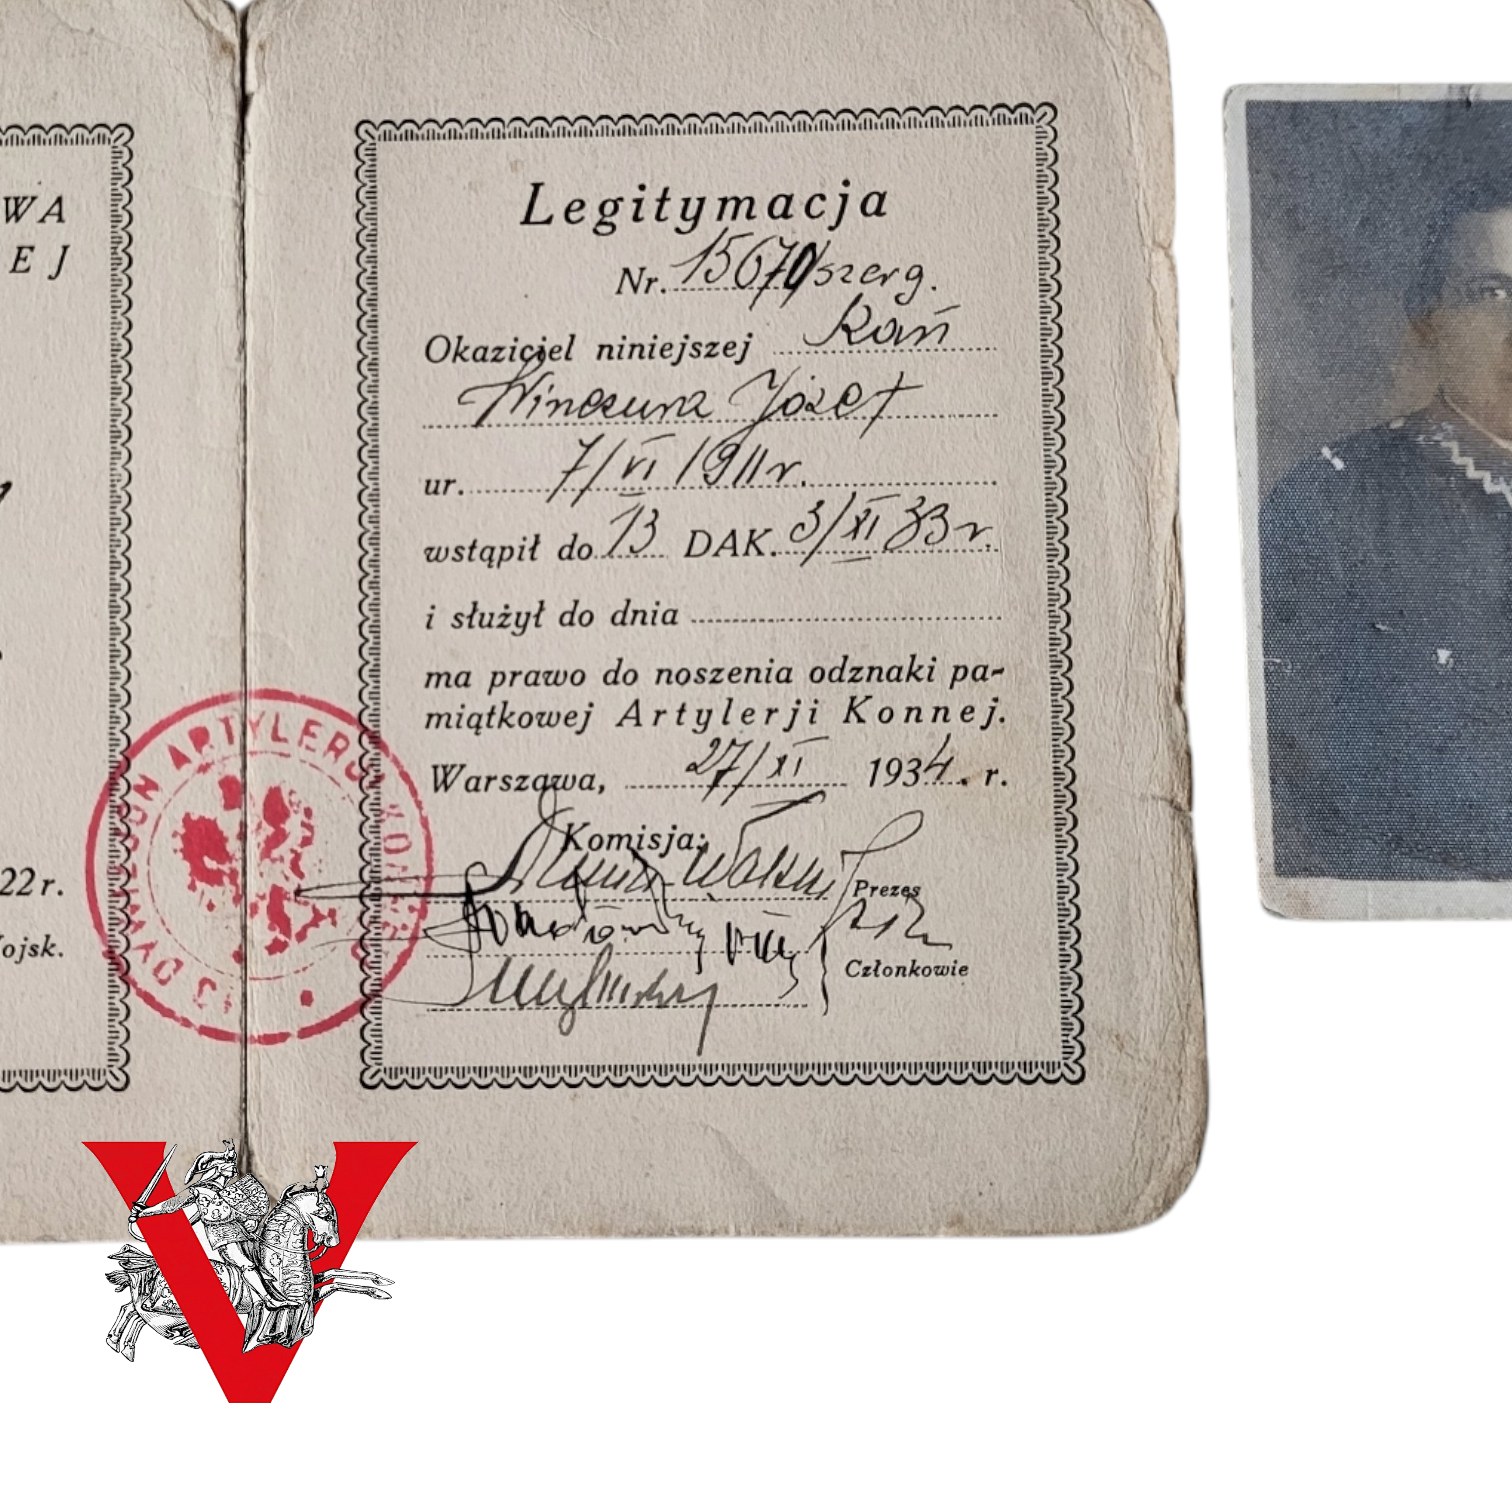 WA
EJ
22 r.
ojsk.
13 DYWIZJON ARTYLERJI KONNEJ
Legitymacja
Nr. 15670/szerg.
Okaziciel niniejszej Kan̄
Józef
ur. 7/VI 1911 r.
wstąpił do 13 DAK. 3/XI 33 r.
i służył do dnia
ma prawo do noszenia odznaki pa-
miątkowej Artylerji Konnej.
Warszawa, 27/XI 1934. r.
Komisja:
Prezes
Członkowie
V